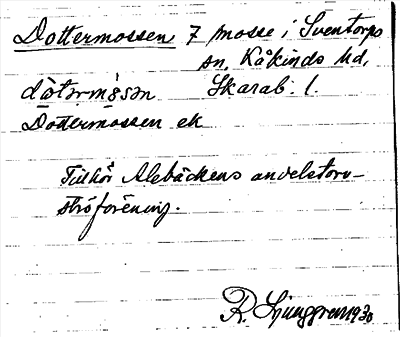 Dottermossen 7 mosse i Sventorps
sn. Kåkinds hd,
då̀tərmɷ̀sən Skarab. l.
Dottermossen ek
Tillhör Alebäckens andelstorv-
ströförening.
R. Ljunggren 1930